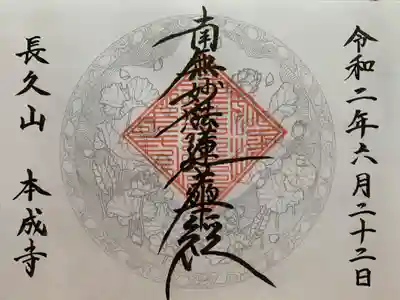 令和二年六月二十二日
南無妙法蓮華経
長久山 本成寺